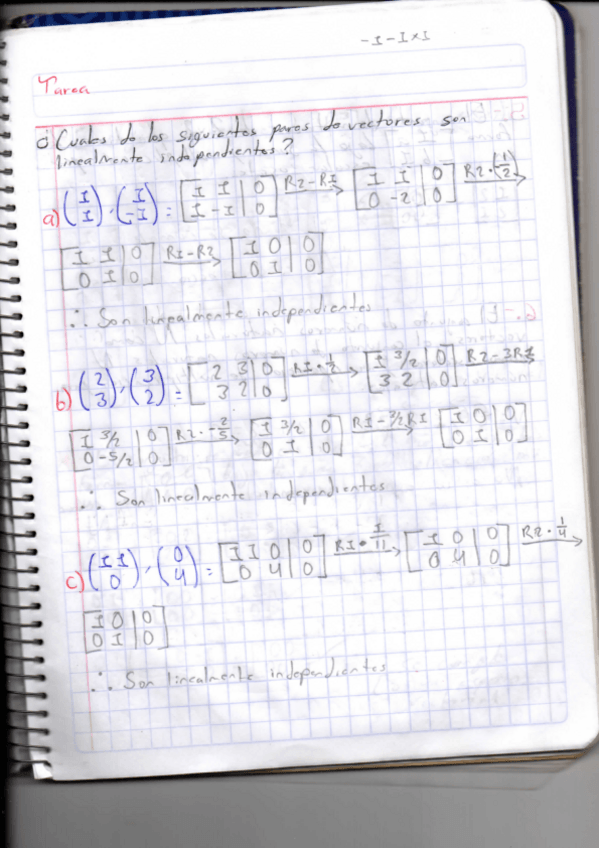 -I-I×I
Tarea
¿Cuales de los siguientes pares de vectores son
linealmente independientes?
a) (I I), (I -I) = [I I | 0; I -I | 0] R2-RI → [I I | 0; 0 -2 | 0] R2·(1/2) →
[I I | 0; 0 I | 0] RI-R2 → [I 0 | 0; 0 I | 0]
∴ Son linealmente independientes
b) (2 3), (3 2) = [2 3 | 0; 3 2 | 0] RI·1/2 → [I 3/2 | 0; 3 2 | 0] R2-3RI →
[I 3/2 | 0; 0 -5/2 | 0] R2·-2/5 → [I 3/2 | 0; 0 I | 0] RI-3/2RI → [I 0 | 0; 0 I | 0]
∴ Son linealmente independientes
c) (II 0), (0 4) = [II 0 | 0; 0 4 | 0] RI·I/11 → [I 0 | 0; 0 4 | 0] R2·1/4 →
[I 0 | 0; 0 I | 0]
∴ Son linealmente independientes